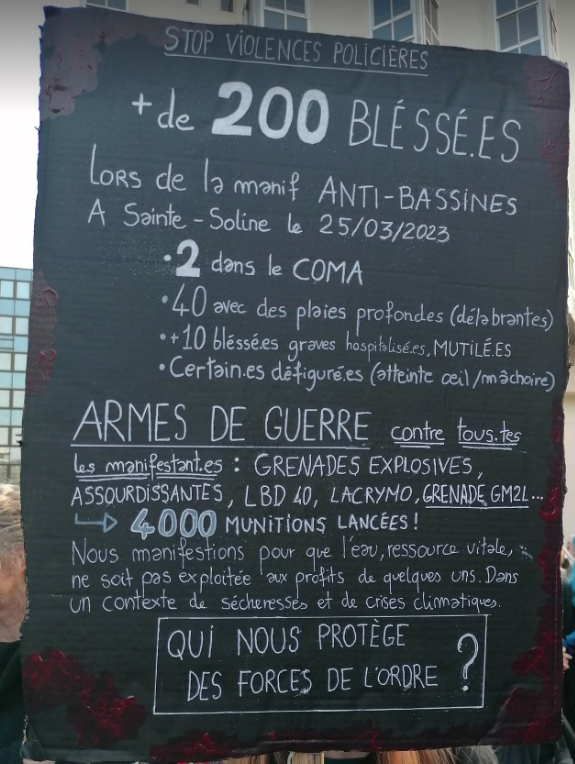 STOP VIOLENCES POLICIÈRES
+ de 200 BLÉSSÉ.ES
LORS de la manif ANTI-BASSINES
A Sainte-Soline le 25/03/2023
• 2 dans le COMA
• 40 avec des plaies profondes (délabrantes)
• +10 bléssé.es graves hospitalisé.es, MUTILÉ.ES
• Certain.es défiguré.es (atteinte œil/mâchoire)
ARMES DE GUERRE contre tous.tes
les manifestant.es : GRENADES EXPLOSIVES,
ASSOURDISSANTES, LBD 40, LACRYMO, GRENADE GM2L...
↳ 4000 MUNITIONS LANCÉES !
Nous manifestions pour que l'eau, ressource vitale,
ne soit pas exploitée aux profits de quelques uns. Dans
un contexte de sécheresses et de crises climatiques.
QUI NOUS PROTÈGE
DES FORCES DE L'ORDRE ?